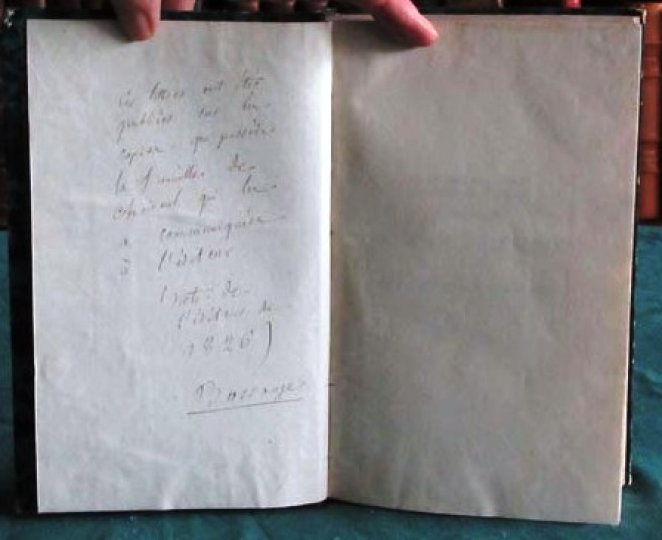 Ces lettres ont été
publiées sur les
copies que possède
la famille de
Choiseul qui les
a communiquées
à l'éditeur
(note de
l'éditeur de
1826)
Bossange